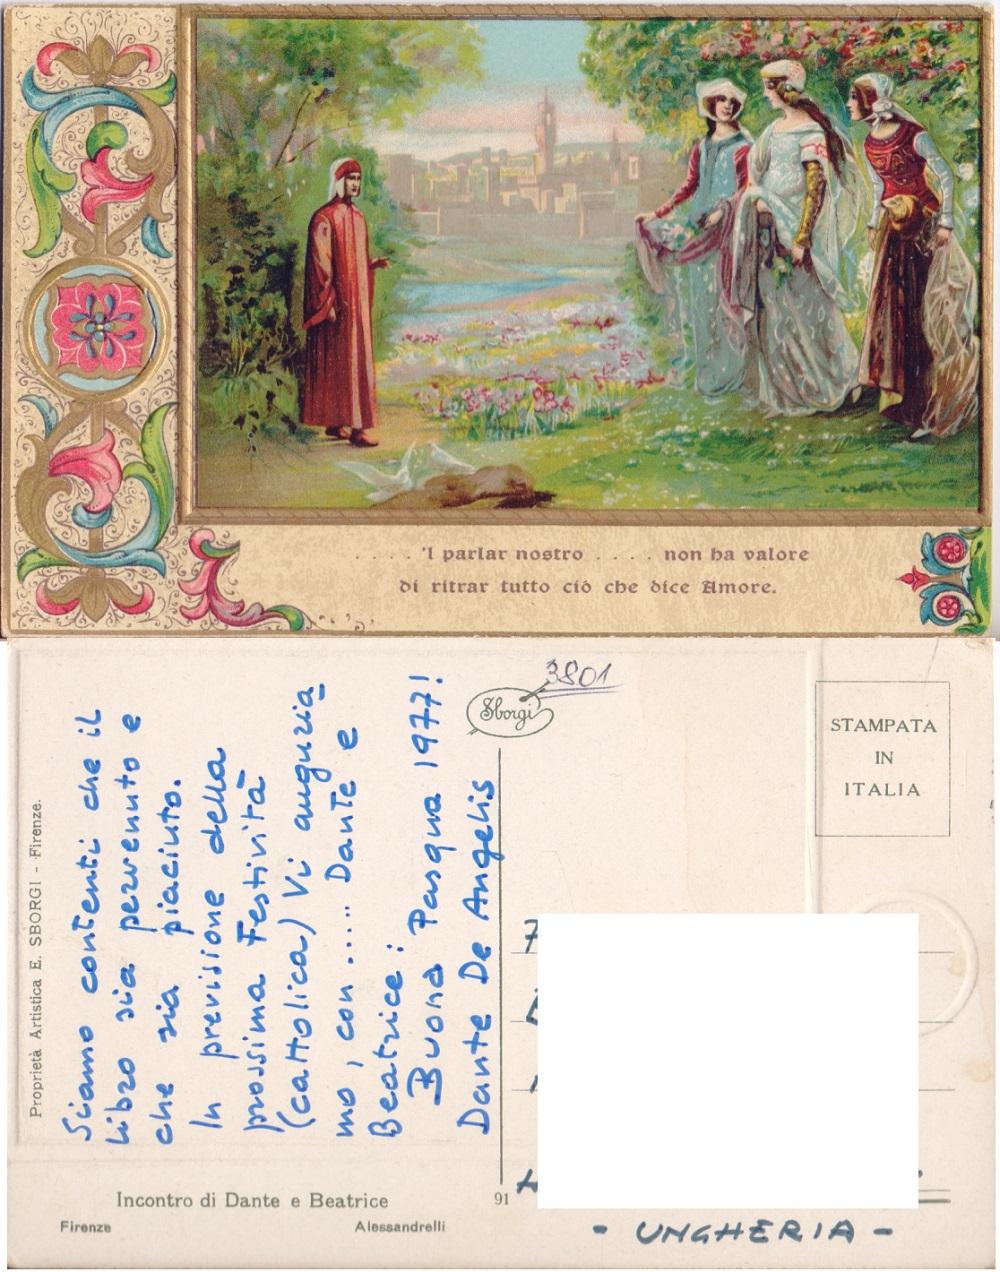 . . . . 'l parlar nostro . . . . non ha valore
di ritrar tutto ciò che dice Amore.
Proprietà Artistica E. SBORGI - Firenze.
Siamo contenti che il
libro sia pervenuto e
che sia piaciuto.
In previsione della
prossima Festività
(cattolica) Vi auguria
mo, con .... Dante e
Beatrice:
Buona Pasqua 1977!
Dante De Angelis
3801
Sborgi
STAMPATA
IN
ITALIA
- UNGHERIA -
Incontro di Dante e Beatrice
91
Firenze
Alessandrelli